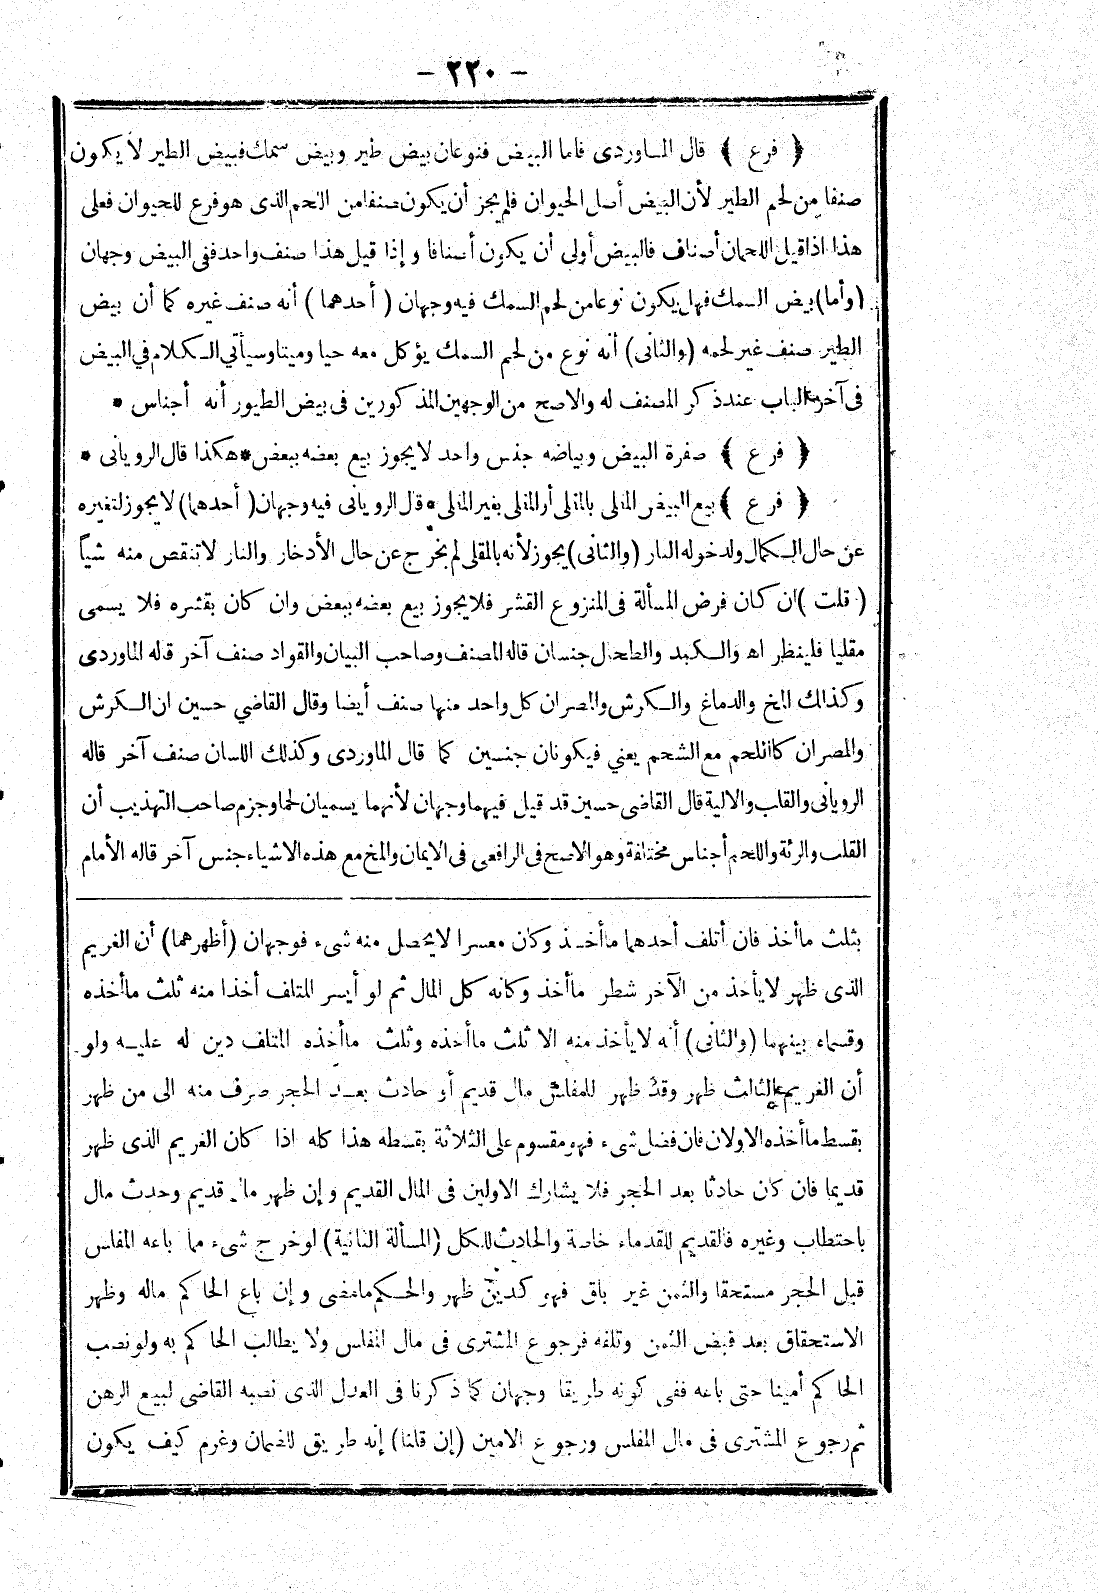 - ٢٢٠ -
﴿ فرع ﴾ قال الماوردى فاما البيض فنوعان بيض طير وبيض سمك فبيض الطير لا يكون
صنفا من لحم الطير لأن البيض أصل الحيوان فلم يجز أن يكون صنفا من اللحم الذى هو فرع للحيوان فعلى
هذا اذا قيل اللحمان أصناف فالبيض أولى أن يكون أصنافا وإذا قيل هذا صنف واحد ففى البيض وجهان
(وأما) بيض السمك فهل يكون نوعا من لحم السمك فيه وجهان (أحدهما) أنه صنف غيره كما أن بيض
الطير صنف غير لحمه (والثانى) أنه نوع من لحم السمك يؤكل معه حيا وميتا وسيأتي الكلام في البيض
فى آخر الباب عند ذكر المصنف له والاصح من الوجهين المذكورين فى بيض الطيور أنه أجناس *
﴿ فرع ﴾ صفرة البيض وبياضه جنس واحد لا يجوز بيع بعضه ببعض * هكذا قال الرويانى *
﴿ فرع ﴾ بيع البيض المقلى بالمقلى أو المقلى بغير المقلى * قال الرويانى فيه وجهان (أحدهما) لا يجوز لتغيره
عن حال الكمال ولدخوله النار (والثانى) يجوز لأنه بالمقلى لم يخرج عن حال الأدخار والنار لا تنقص منه شيأ
(قلت) ان كان فرض المسألة فى المنزوع القشر فلا يجوز بيع بعضه ببعض وان كان بقشره فلا يسمى
مقليا فلينظر اه والكبد والطحال جنسان قاله المصنف وصاحب البيان والفواد صنف آخر قاله الماوردى
وكذلك المخ والدماغ والكرش والمصران كل واحد منها صنف أيضا وقال القاضي حسين ان الكرش
والمصران كاللحم مع الشحم يعني فيكونان جنسين كما قال الماوردى وكذلك اللسان صنف آخر قاله
الرويانى والقلب والالية قال القاضى حسين قد قيل فيهما وجهان لأنهما يسميان لحما وجزم صاحب التهذيب أن
القلب والرئة واللحم أجناس مختلفة وهو الاصح فى الرافعى فى الايمان والمخ مع هذه الاشياء جنس آخر قاله الأمام
بثلث ماأخذ فان أتلف أحدهما ماأخذ وكان معسرا لا يحصل منه شىء فوجهان (أظهرهما) أن الغريم
الذى ظهر لا يأخذ من الآخر شطر ماأخذ وكأنه كل المال ثم لو أيسر المتلف أخذا منه ثلث ماأخذه
وقسماه بينهما (والثانى) أنه لا يأخذ منه الا ثلث ماأخذه وثلث ماأخذه المتلف دين له عليه ولو
أن الغريم الثالث ظهر وقد ظهر للمفلس مال قديم أو حادث بعد الحجر صرف منه الى من ظهر
بقسط ماأخذه الاولان فان فضل شىء فهو مقسوم على الثلاثة بقسطه هذا كله اذا كان الغريم الذى ظهر
قديما فان كان حادثا بعد الحجر فلا يشارك الاولين فى المال القديم وإن ظهر مال قديم وحدث مال
باحتطاب وغيره فالقديم للقدماء خاصة والحادث للكل (المسألة الثانية) لو خرج شىء مما باعه المفلس
قبل الحجر مستحقا والثمن غير باق فهو كدين ظهر والحكم مامضى وإن باع الحاكم ماله وظهر
الاستحقاق بعد قبض الثمن وتلفه فرجوع المشترى فى مال المفلس ولا يطالب الحاكم به ولو نصب
الحاكم أمينا حتى باعه ففى كونه طريقا وجهان كما ذكرنا فى العدل الذى نصبه القاضى لبيع الرهن
ثم رجوع المشترى فى مال المفلس ورجوع الامين (إن قلنا) إنه طريق للضمان وغرم كيف يكون